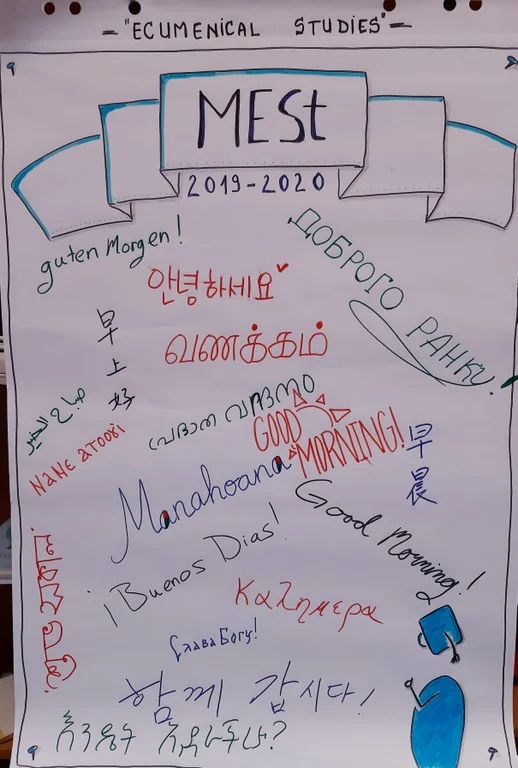 - "ECUMENICAL STUDIES" -
MESt
2019-2020
guten Morgen!
ДОБРОГО РАНКУ!
안녕하세요
早上好
வணக்கம்
صباح الخير
NaNe aтooki
GOOD MORNING!
早晨
Manahoana
Good Morning!
¡Buenos Dias!
Καλημερα
Слава Богу!
함께 갑시다!